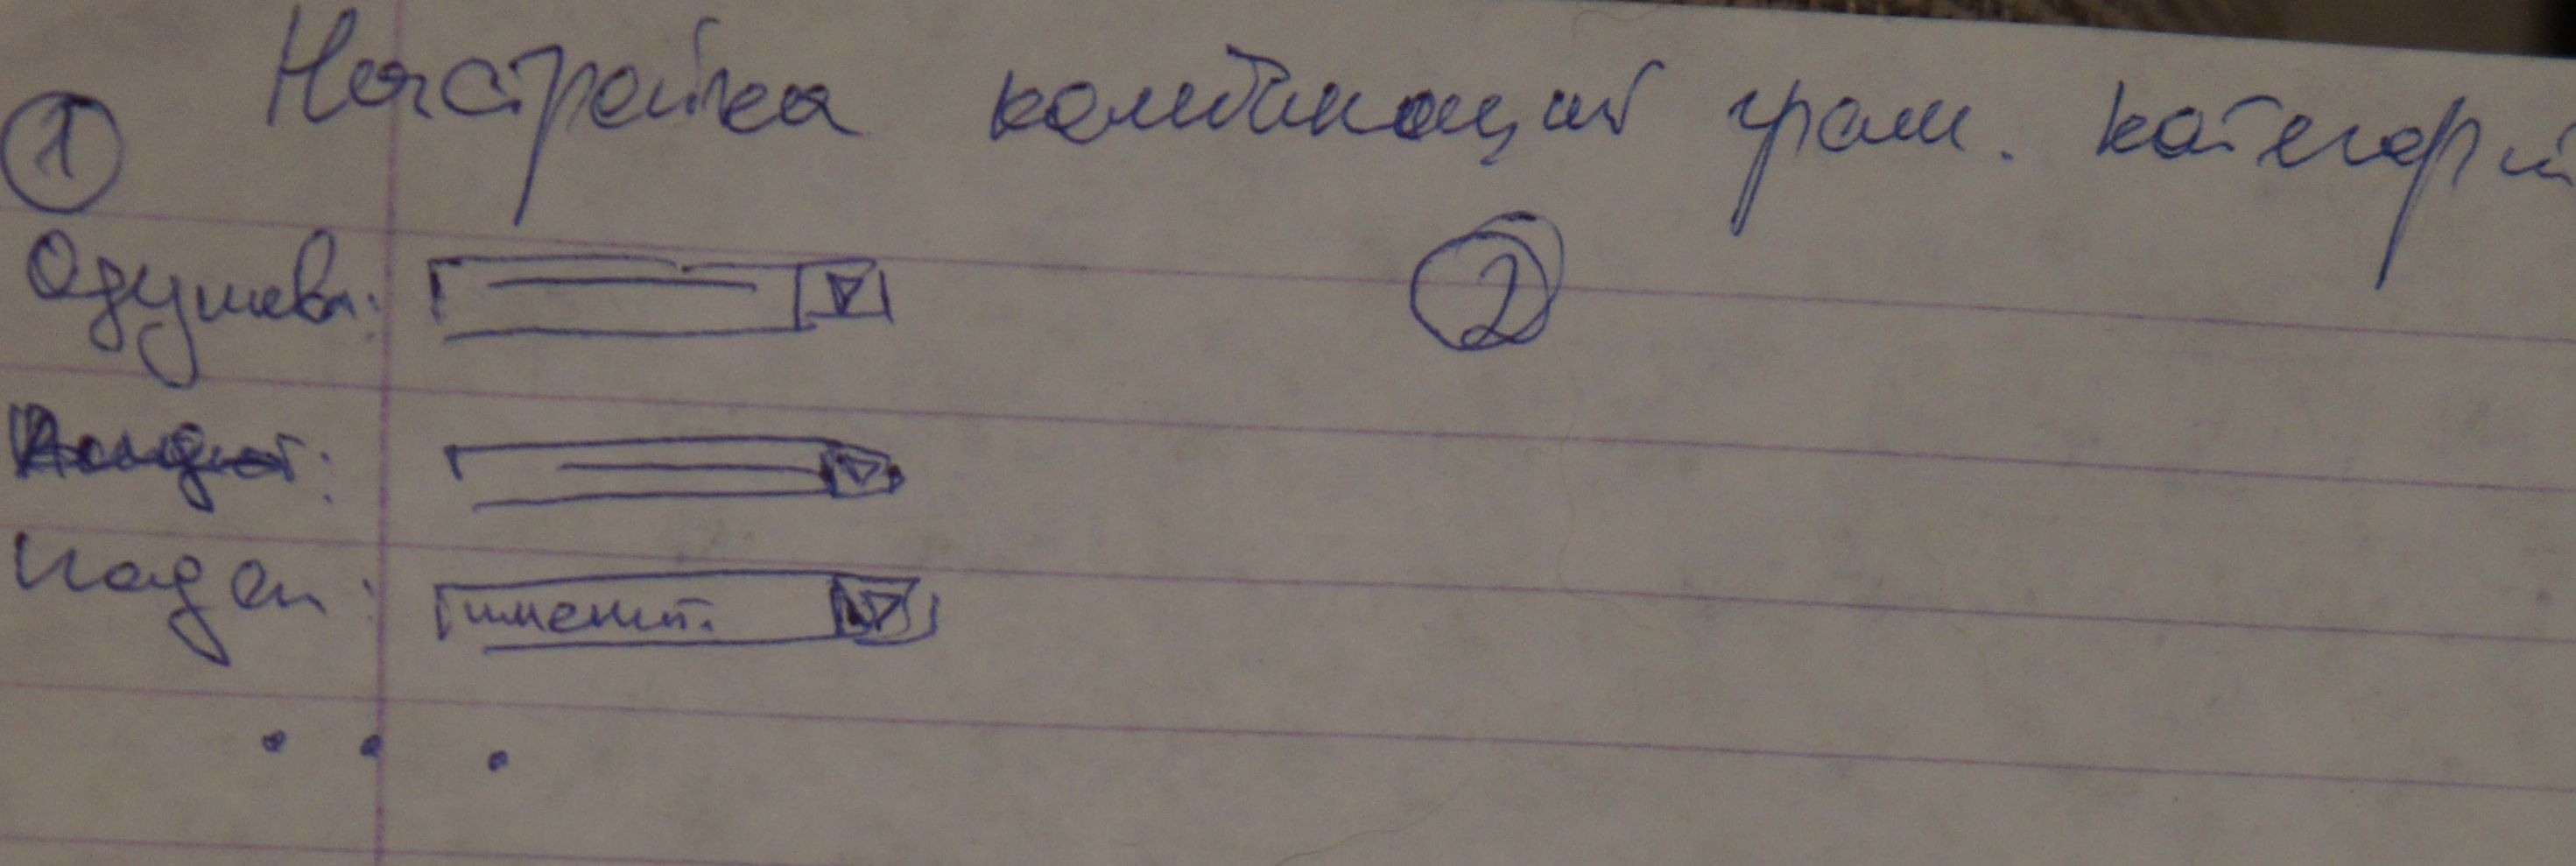 Настройка комбинаций грам. категорий
①
②
Одушевл:
падеж:
именит.
. . .